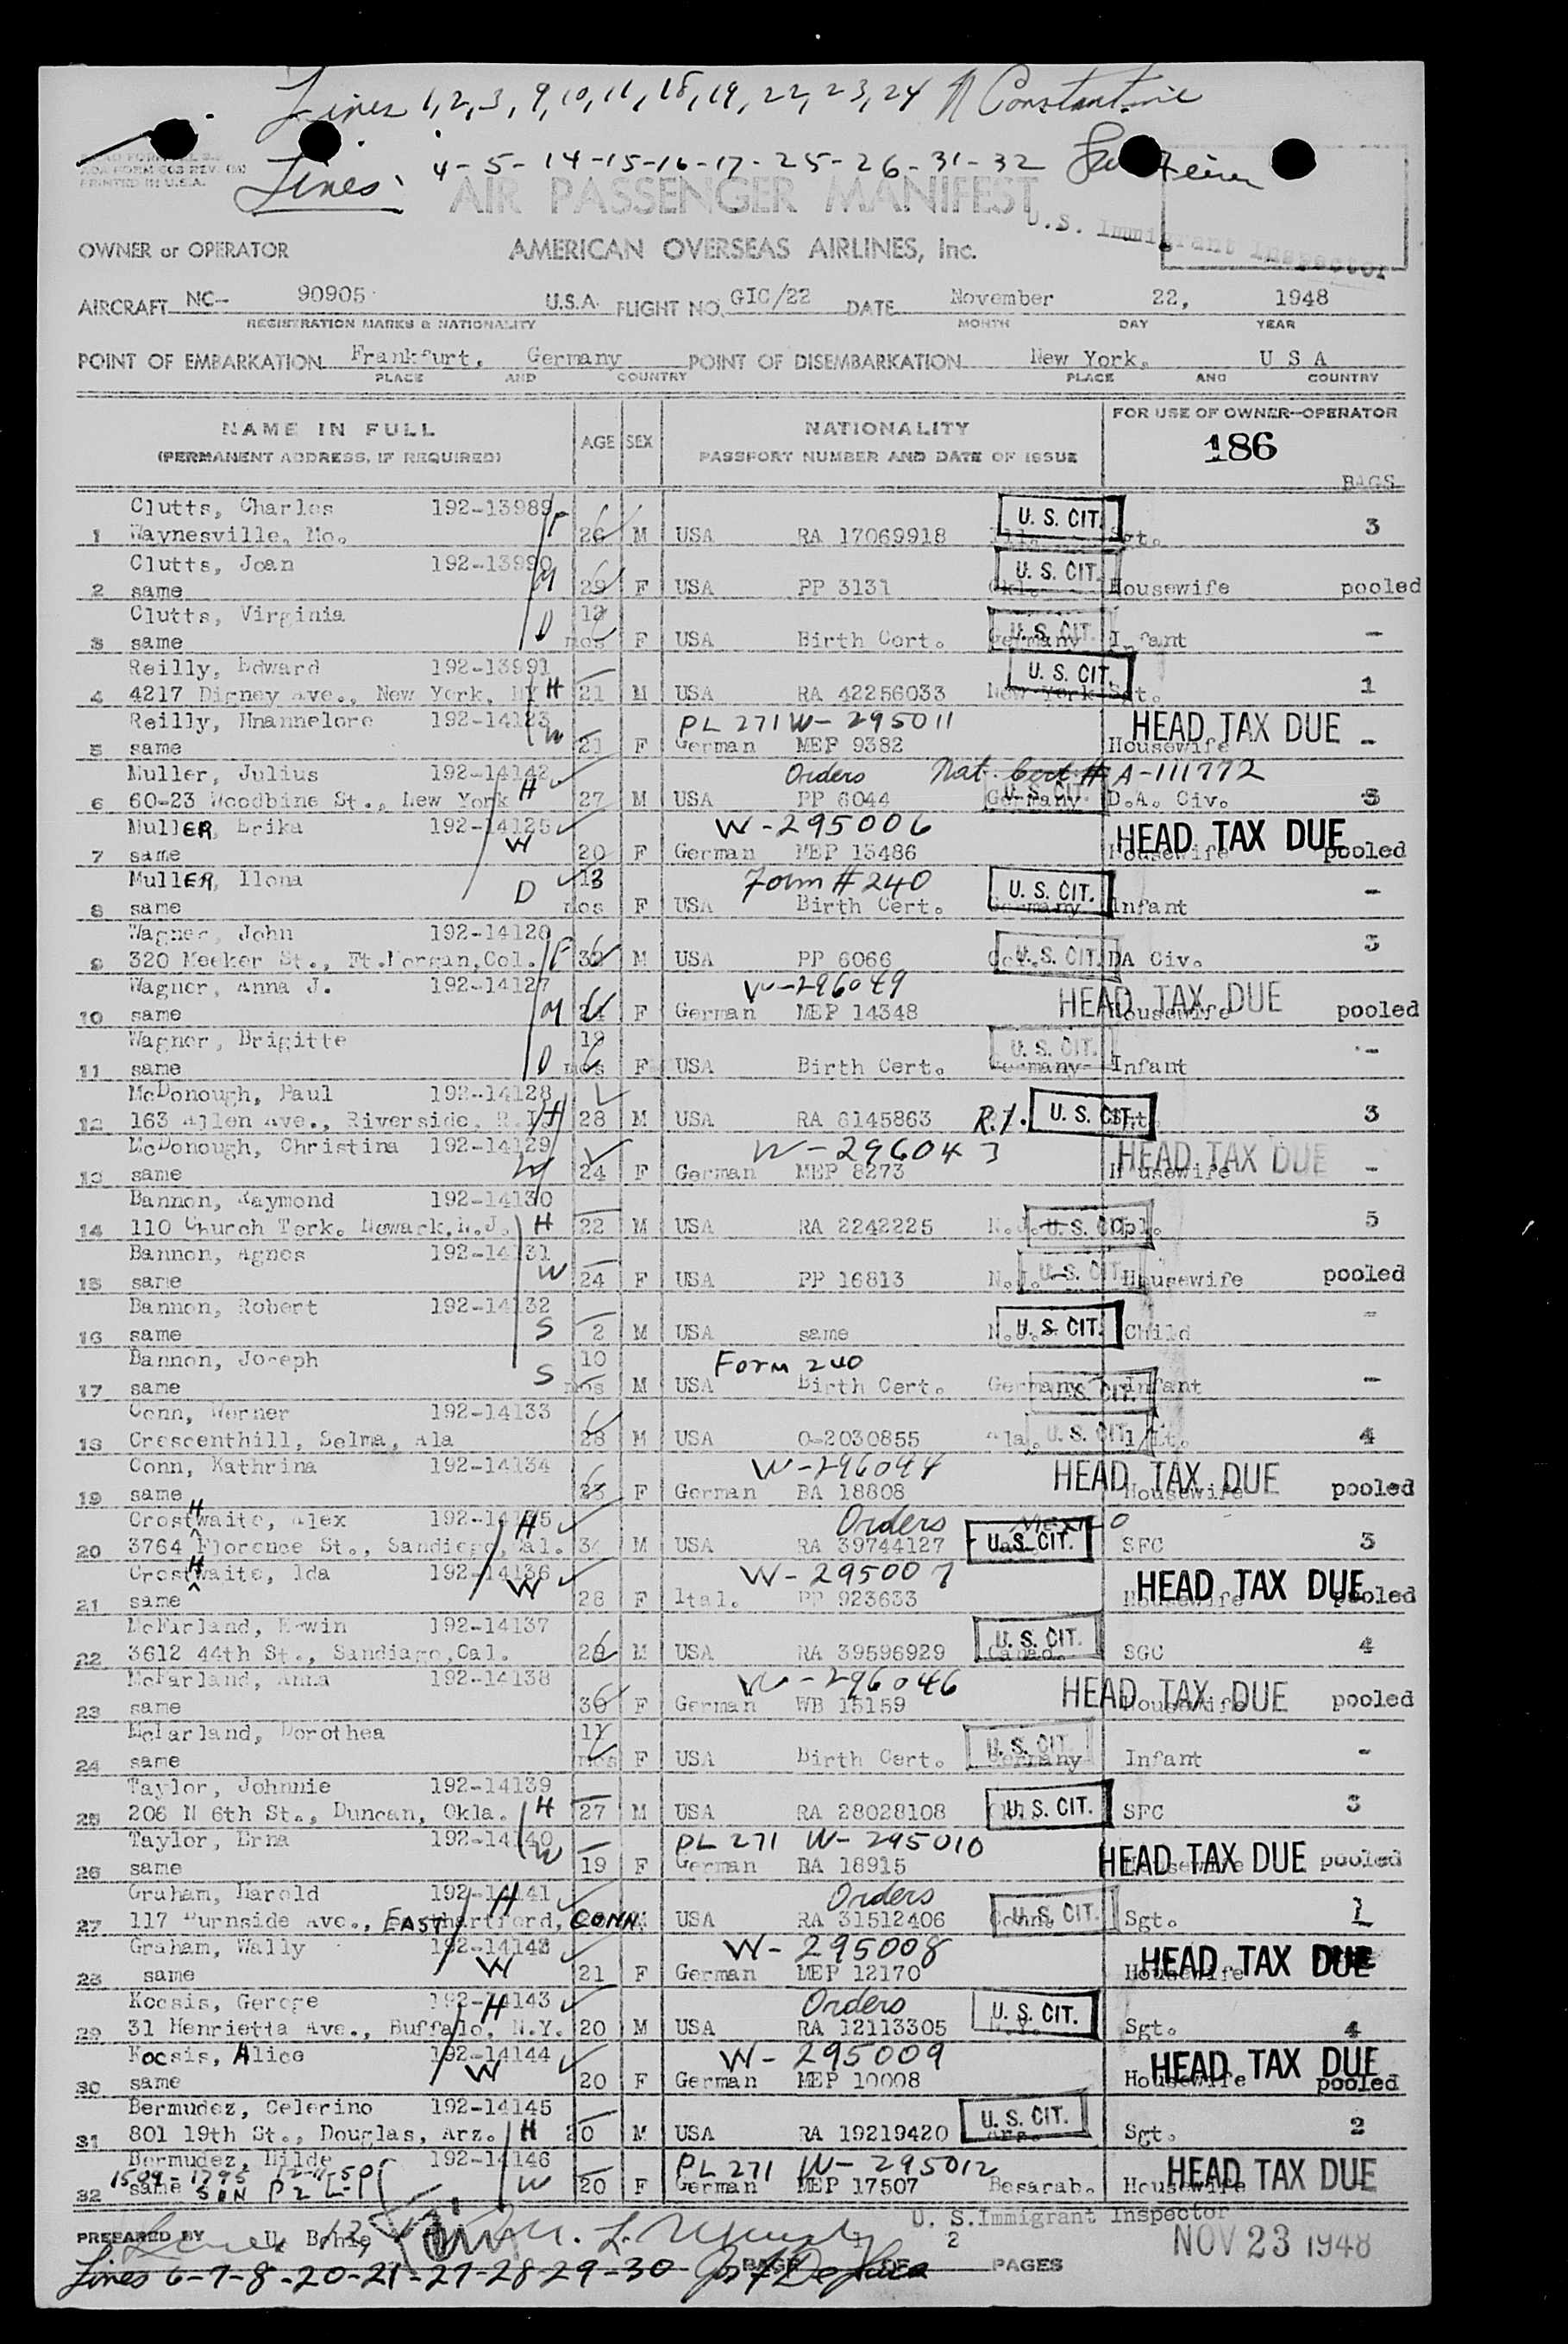 Lines 1, 2, 3, 9, 10, 11, 18, 19, 22, 23, 24 Constantine
PRINTED IN U.S.A.
Lines: 4-5-14-15-16-17-25-26-31-32
AIR PASSENGER MANIFEST
U.S. Immigrant Inspector
OWNER or OPERATOR AMERICAN OVERSEAS AIRLINES, Inc.
AIRCRAFT NC- 90905 U.S.A. FLIGHT NO. GIC/22 DATE November 22, 1948
REGISTRATION MARKS & NATIONALITY MONTH DAY YEAR
POINT OF EMBARKATION Frankfurt, Germany POINT OF DISEMBARKATION New York, U S A
PLACE AND COUNTRY PLACE AND COUNTRY
NAME IN FULL AGE SEX NATIONALITY FOR USE OF OWNER-OPERATOR
(PERMANENT ADDRESS, IF REQUIRED) PASSPORT NUMBER AND DATE OF ISSUE 186
BAGS
Clutts, Charles 192-13989 F U. S. CIT.
1 Waynesville, Mo. 26 M USA RA 17069918 Sgt. 3
Clutts, Joan 192-13990 M U. S. CIT.
2 same 29 F USA PP 3131 Housewife pooled
Clutts, Virginia 12 U. S. CIT.
3 same D mos F USA Birth Cert. Germany Infant -
Reilly, Edward 192-13991 U. S. CIT.
4 4217 Digney Ave., New York, NY H 21 M USA RA 42256033 New York Sgt. 1
Reilly, Hnannelore 192-14123 W PL 271 W-295011 HEAD TAX DUE
5 same 21 F German MEP 9382 Housewife -
Muller, Julius 192-14142 Orders Nat. Cert # A-111772
6 60-23 Woodbine St., New York H 27 M USA PP 6044 Germany U. S. CIT. D.A. Civ. 3
MullER, Erika 192-14125 W W-295006 HEAD TAX DUE
7 same 20 F German MEP 13486 Housewife pooled
MullER, Ilona D 13 Form # 240 U. S. CIT.
8 same mos F USA Birth Cert. Germany Infant -
Wagner, John 192-14126 3
9 320 Meeker St., Ft.Morgan,Col. F 32 M USA PP 6066 U. S. CIT. DA Civ.
Wagner, Anna J. 192-14127 W-296049 HEAD TAX DUE
10 same M F German MEP 14348 Housewife pooled
Wagner, Brigitte U. S. CIT.
11 same D mos F USA Birth Cert. Germany Infant -
McDonough, Paul 192-14128
12 163 Allen Ave., Riverside, R.I. H 28 M USA RA 6145863 R.I. U. S. CIT. 3
McDonough, Christina 192-14129 W-296043 HEAD TAX DUE
13 same W 24 F German MEP 8273 Housewife -
Bannon, Raymond 192-14130
14 110 Church Terk. Newark,N.J. H 22 M USA RA 2242225 N.J. U. S. CIT. Cpl. 5
Bannon, Agnes 192-14131
15 same W 24 F USA PP 16813 N.J. U. S. CIT. Housewife pooled
Bannon, Robert 192-14132
16 same S 2 M USA same N.J. U. S. CIT. Child -
Bannon, Joseph 10 Form 240
17 same S mos M USA Birth Cert. Germany U. S. CIT. Infant -
Conn, Werner 192-14133
18 Crescenthill, Selma, Ala 28 M USA O-2030855 Ala. U. S. CIT. 1/Lt. 4
Conn, Kathrina 192-14134 W-296044 HEAD TAX DUE
19 same 23 F German BA 18808 Housewife pooled
CrostHwaite, Alex 192-14135 H Orders Mexico
20 3764 Florence St., Sandiego,Cal. M USA RA 39744127 U. S. CIT. SFC 3
CrostHwaite, Ida 192-14136 W W-295007 HEAD TAX DUE
21 same 28 F Ital. PP 923633 Housewife pooled
McFarland, Erwin 192-14137 U. S. CIT.
22 3612 44th St., Sandiago,Cal. M USA RA 39596929 Canad. SGC 4
McFarland, Anna 192-14138 W-296046 HEAD TAX DUE
23 same 36 F German WB 15159 Housewife pooled
McFarland, Dorothea 11 U. S. CIT.
24 same mos F USA Birth Cert. Germany Infant -
Taylor, Johnnie 192-14139
25 206 N 6th St., Duncan, Okla. H 27 M USA RA 28028108 U. S. CIT. SFC 3
Taylor, Erna 192-14140 W PL 271 W-295010 HEAD TAX DUE
26 same 19 F German BA 18915 Housewife pooled
Graham, Harold 192-14141 H Orders
27 117 Burnside Ave., EAST Hartford, CONN. M USA RA 31512406 Conn. U. S. CIT. Sgt. 1
Graham, Wally 192-14142 W W-295008 HEAD TAX DUE
28 same 21 F German MEP 12170 Housewife
Kocsis, Geroge 192-14143 H Orders U. S. CIT.
29 31 Henrietta Ave., Buffalo, N.Y. 20 M USA RA 12113305 N.Y. Sgt. 4
Kocsis, Alice 192-14144 W W-295009 HEAD TAX DUE
30 same 20 F German MEP 10008 Housewife pooled
Bermudez, Celerino 192-14145 U. S. CIT.
31 801 19th St., Douglas, Arz. H 20 M USA RA 19219420 Arz. Sgt. 2
Bermudez, Hilde 192-14146 PL 271 W-295012 HEAD TAX DUE
32 same W 20 F German MEP 17507 Besarab. Housewife
U. S. Immigrant Inspector
PREPARED BY U. Bohie NOV 23 1948
PAGE 1 OF 2 PAGES
Lines 6-7-8-20-21-27-28-29-30